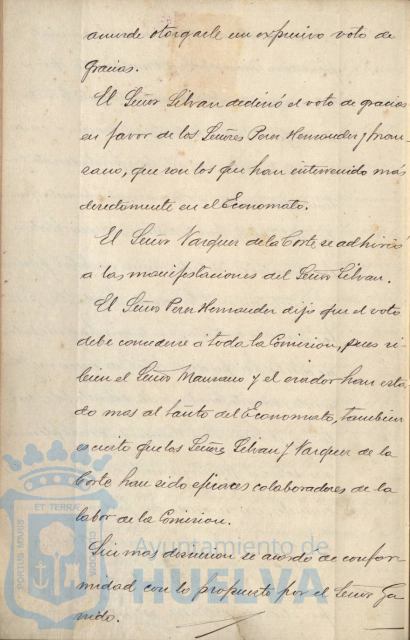 acuerde otorgarle un expresivo voto de
gracias.
El Señor Silvan declinó el voto de gracias
en favor de los Señores Perez Hernandez y Man-
zano, que son los que han intervenido más
directamente en el Economato.
El Señor Vazquez de la Corte se adhirió
á las manifestaciones del Señor Silvan.
El Señor Perez Hernandez dijo que el voto
debe concederse á toda la Comision, pues si
bien el Señor Manzano y el orador han esta-
do mas al tanto del Economato, tambien
es cierto que los Señores Silvan y Vazquez de la
Corte han sido eficaces colaboradores de la
labor de la Comision.
Sin mas discusion se acordó de confor-
midad con lo propuesto por el Señor Ga-
rrido.
PORTUS MARIS
ET TERRAE
CUSTODIA
Ayuntamiento de
HUELVA